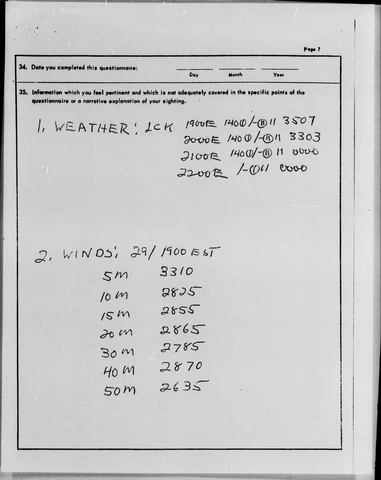 Page 7
34. Date you completed this questionnaire:
Day Month Year
35. Information which you feel pertinent and which is not adequately covered in the specific points of the
questionnaire or a narrative explanation of your sighting.
1. WEATHER: LCK 1900E 140⦶/-⦷11 3507
2000E 140⦶/-⦷11 3303
2100E 140⦶/-⦷11 0000
2200E /-⦶11 0000
2. WINDS: 29/1900 EST
5M 3310
10M 2825
15M 2855
20M 2865
30M 2785
40M 2870
50M 2635